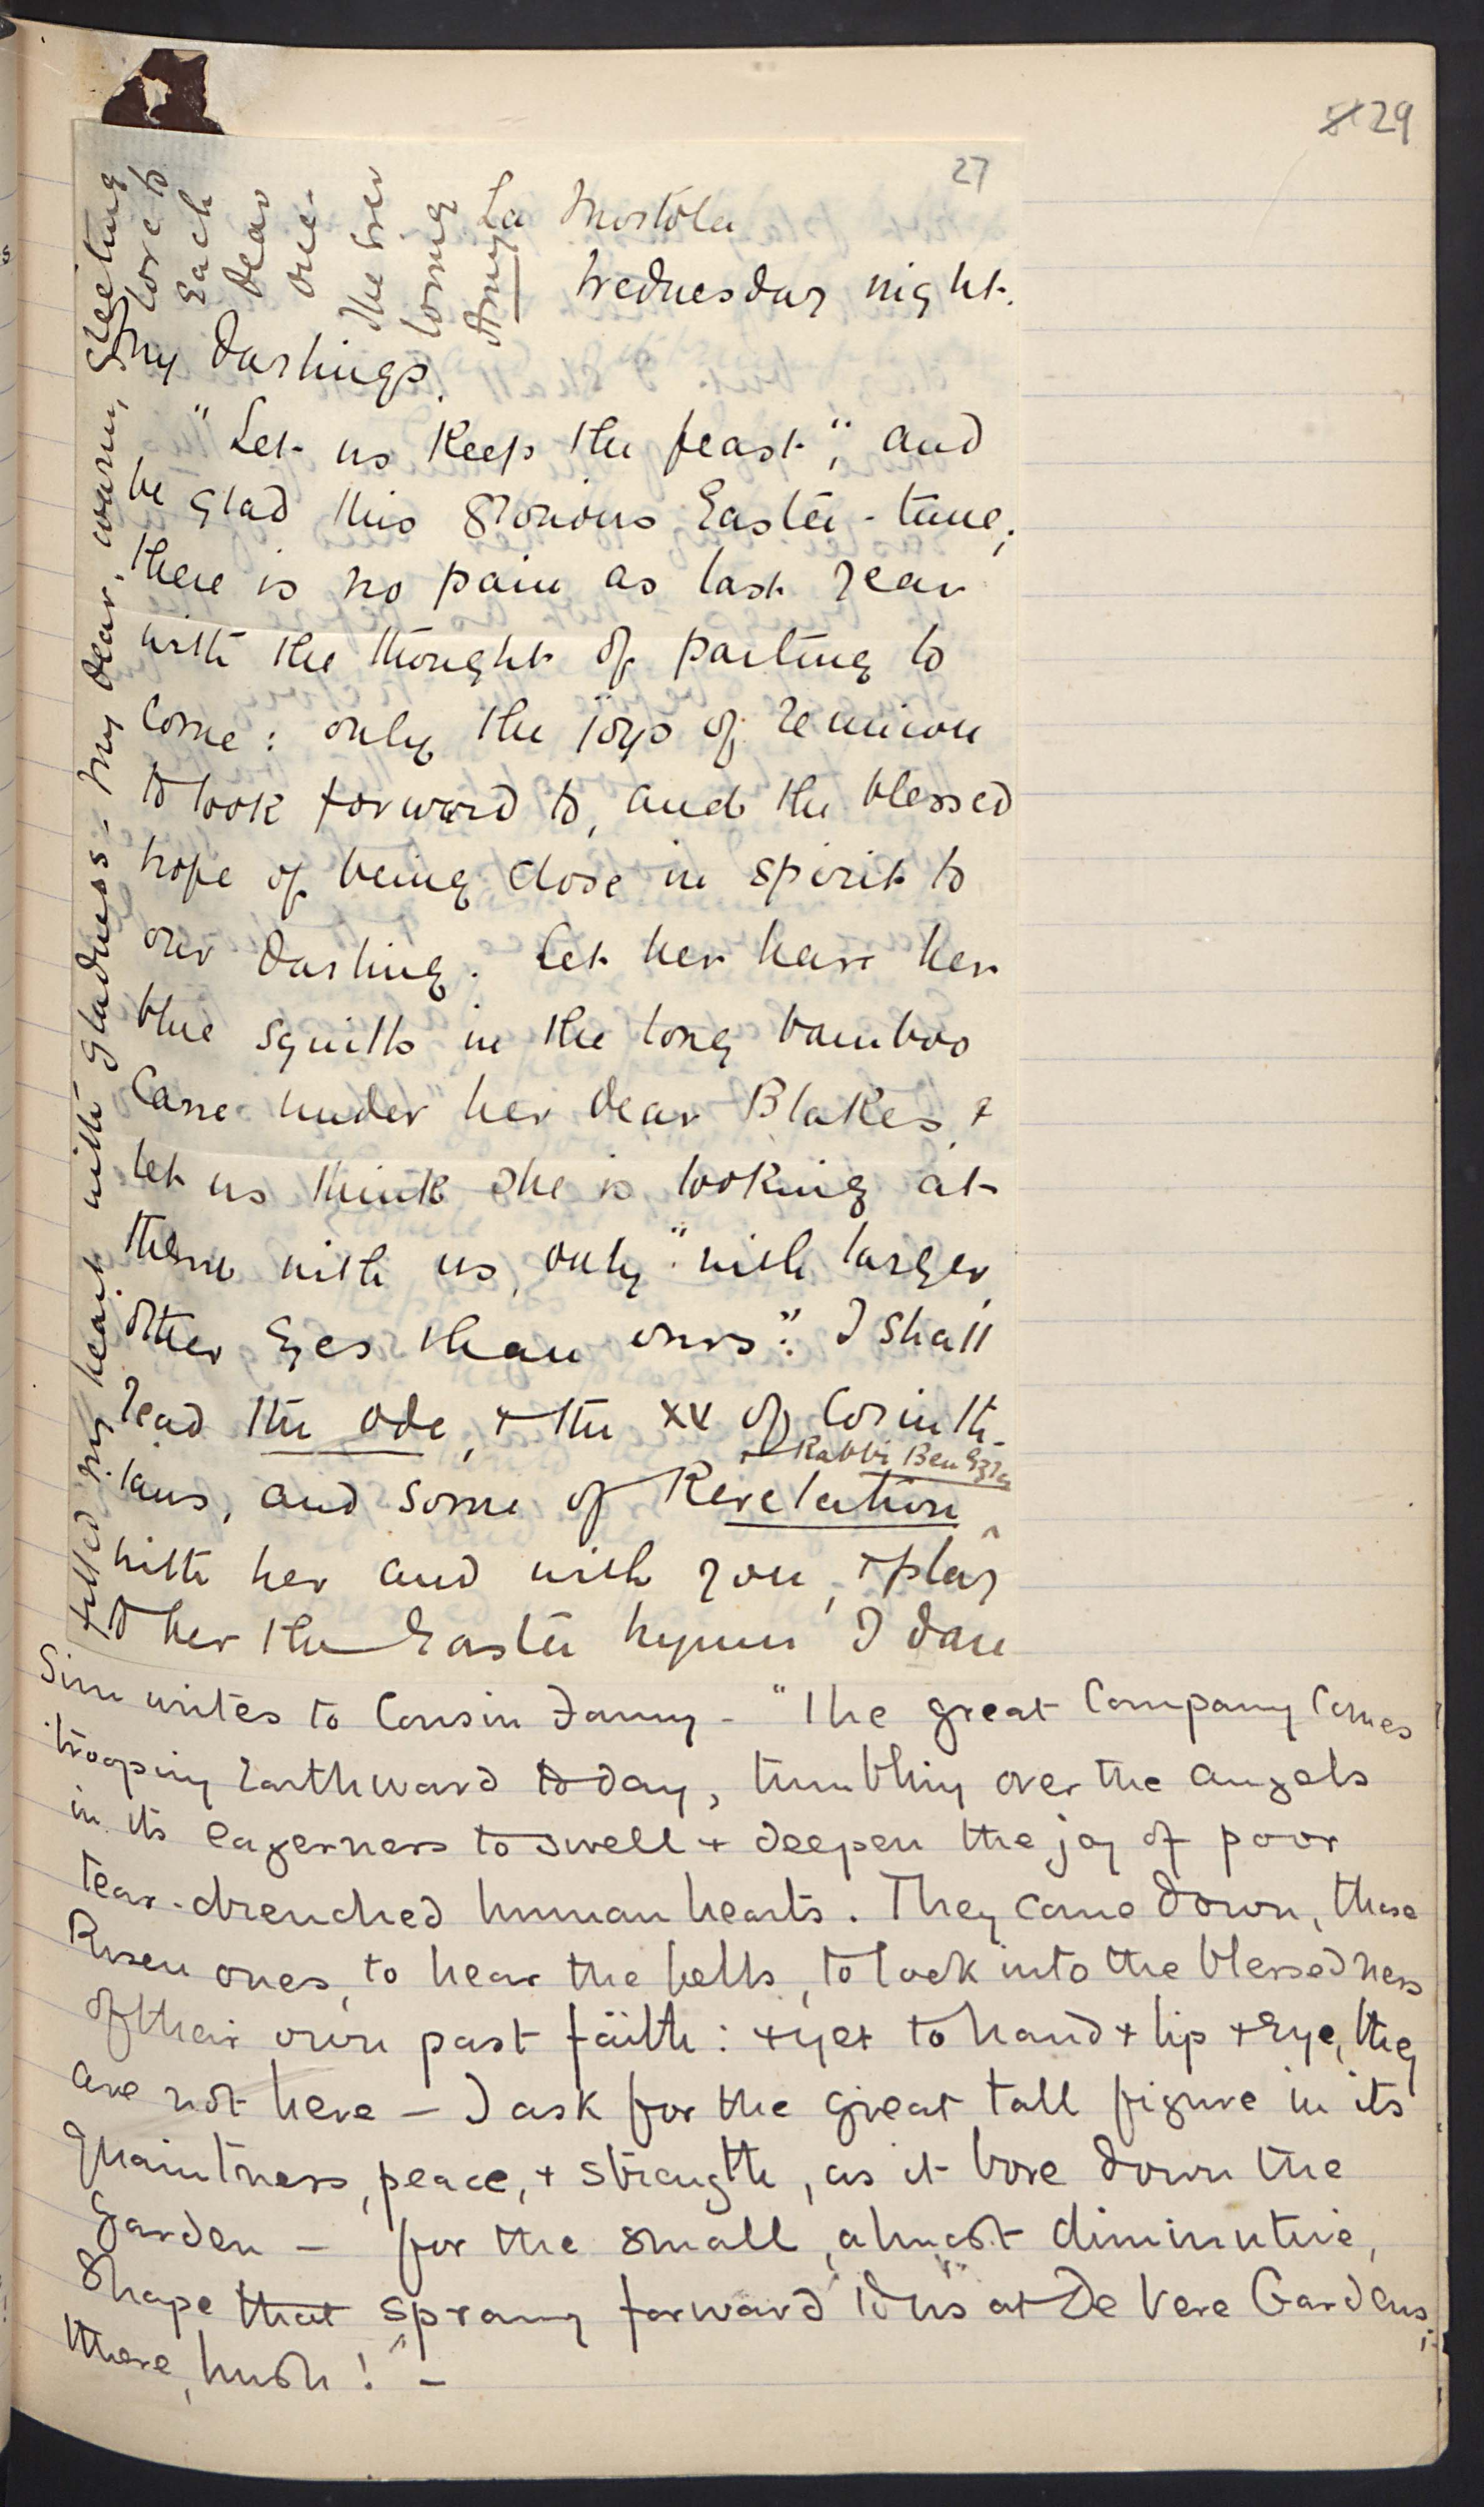 29
27
La Mortola
Wednesday night.
My Darlings.
"Let us keep the feast", and
be glad this glorious Easter-time;
there is no pain as last year
with the thought of parting to
come: only the joys of reunion
to look forward to, and the blessed
hope of being close in spirit to
our darling. Let her have her
blue squills in the long bamboo
cane under her dear Blakes, &
let us think she is looking at
them with us, only "with larger,
other eyes than ours". I shall
read the ode, + the xv of Corinth-
+ Rabbi Ben Ezra
ians, and some of Revelation
with her and with you, + play
to her the Easter hymn I dare
filled my heart with gladness - My dear, warm, greeting
love to
Each
dear
one.
The ever
loving
Amy
Sim writes to Cousin Fanny - "The great Company comes
trooping Earthward today, tumbling over the angels
in its eagerness to swell + deepen the joy of poor
tear-drenched human hearts. They come down, these
Risen ones, to hear the bells, to look into the blessedness
of their own past faith: + yet to hand + lip + Eye, they
are not here - I ask for the great tall figure in its
quaintness, peace, + strength, as it bore down the
garden - for the small, almost diminutive,
shape that sprang forward to us at De Vere Gardens;-
there, hush! -